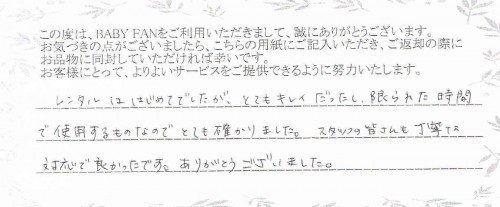 この度は、BABY FANをご利用いただきまして、誠にありがとうございます。
お気づきの点がございましたら、こちらの用紙にご記入いただき、ご返却の際に
お品物に同封していただければ幸いです。
お客様にとって、よりよいサービスをご提供できるように努力いたします。
レンタルははじめてでしたが、とてもキレイだったし、限られた時間
で使用するものなのでとても確かりました。スタッフの皆さんも丁寧な
対応で良かったです。ありがとうございました。